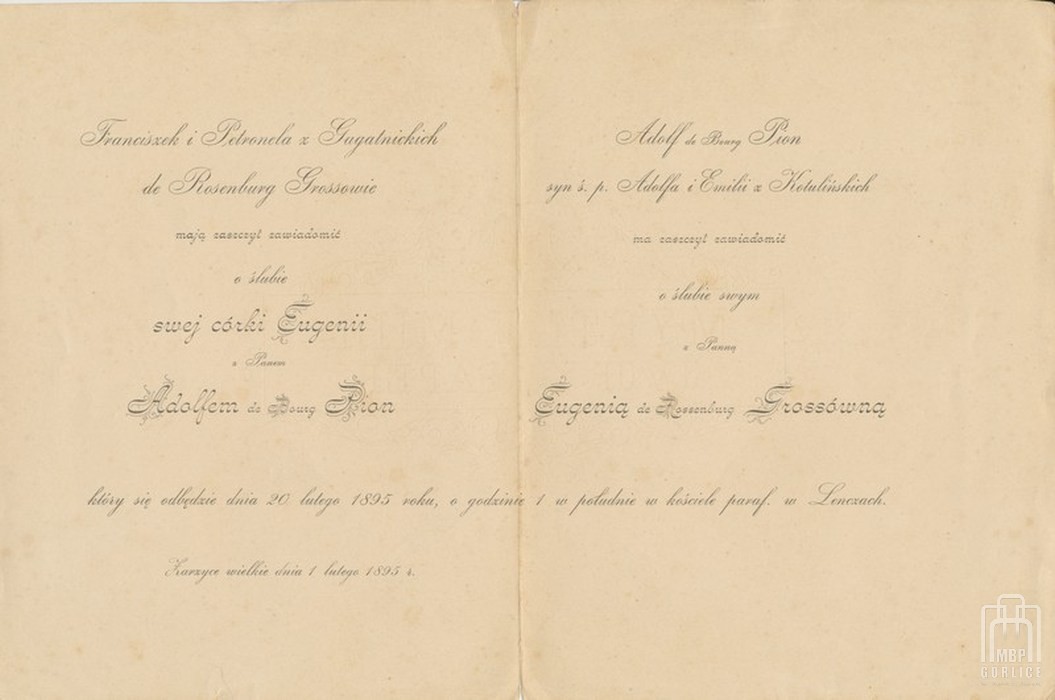 Franciszek i Petronela z Gagatnickich
de Rosenburg Grossowie
mają zaszczyt zawiadomić
o ślubie
swej córki Eugenii
z Panem
Adolfem de Bourg Pion
Adolf de Bourg Pion
syn ś. p. Adolfa i Emilii z Kotulińskich
ma zaszczyt zawiadomić
o ślubie swym
z Panną
Eugenią de Rossenburg Grossówną
który się odbędzie dnia 20 lutego 1895 roku, o godzinie 1 w południe w kościele paraf. w Lenczach.
Zarzyce wielkie dnia 1 lutego 1895 r.
MBP
GORLICE